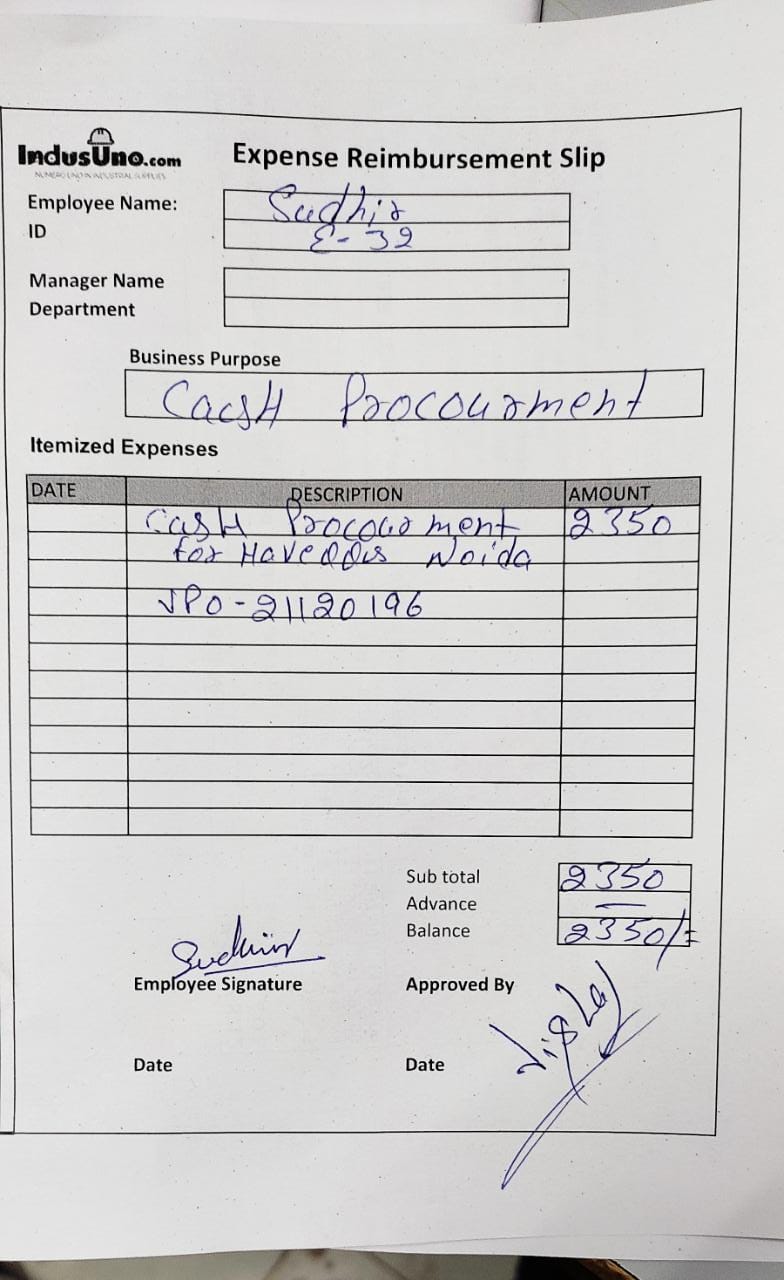 IndusUno.com
NUMERO UNO IN INDUSTRIAL SUPPLIES
Expense Reimbursement Slip
Employee Name: Sudhir
ID E-32
Manager Name
Department
Business Purpose
CacsH Procourment
Itemized Expenses
DATE DESCRIPTION AMOUNT
CasH Procourment 2350
for Noida
JPO-21120196
Sub total 2350
Advance —
Balance 2350/=
Sudhir
Employee Signature Approved By
Vishal
Date Date